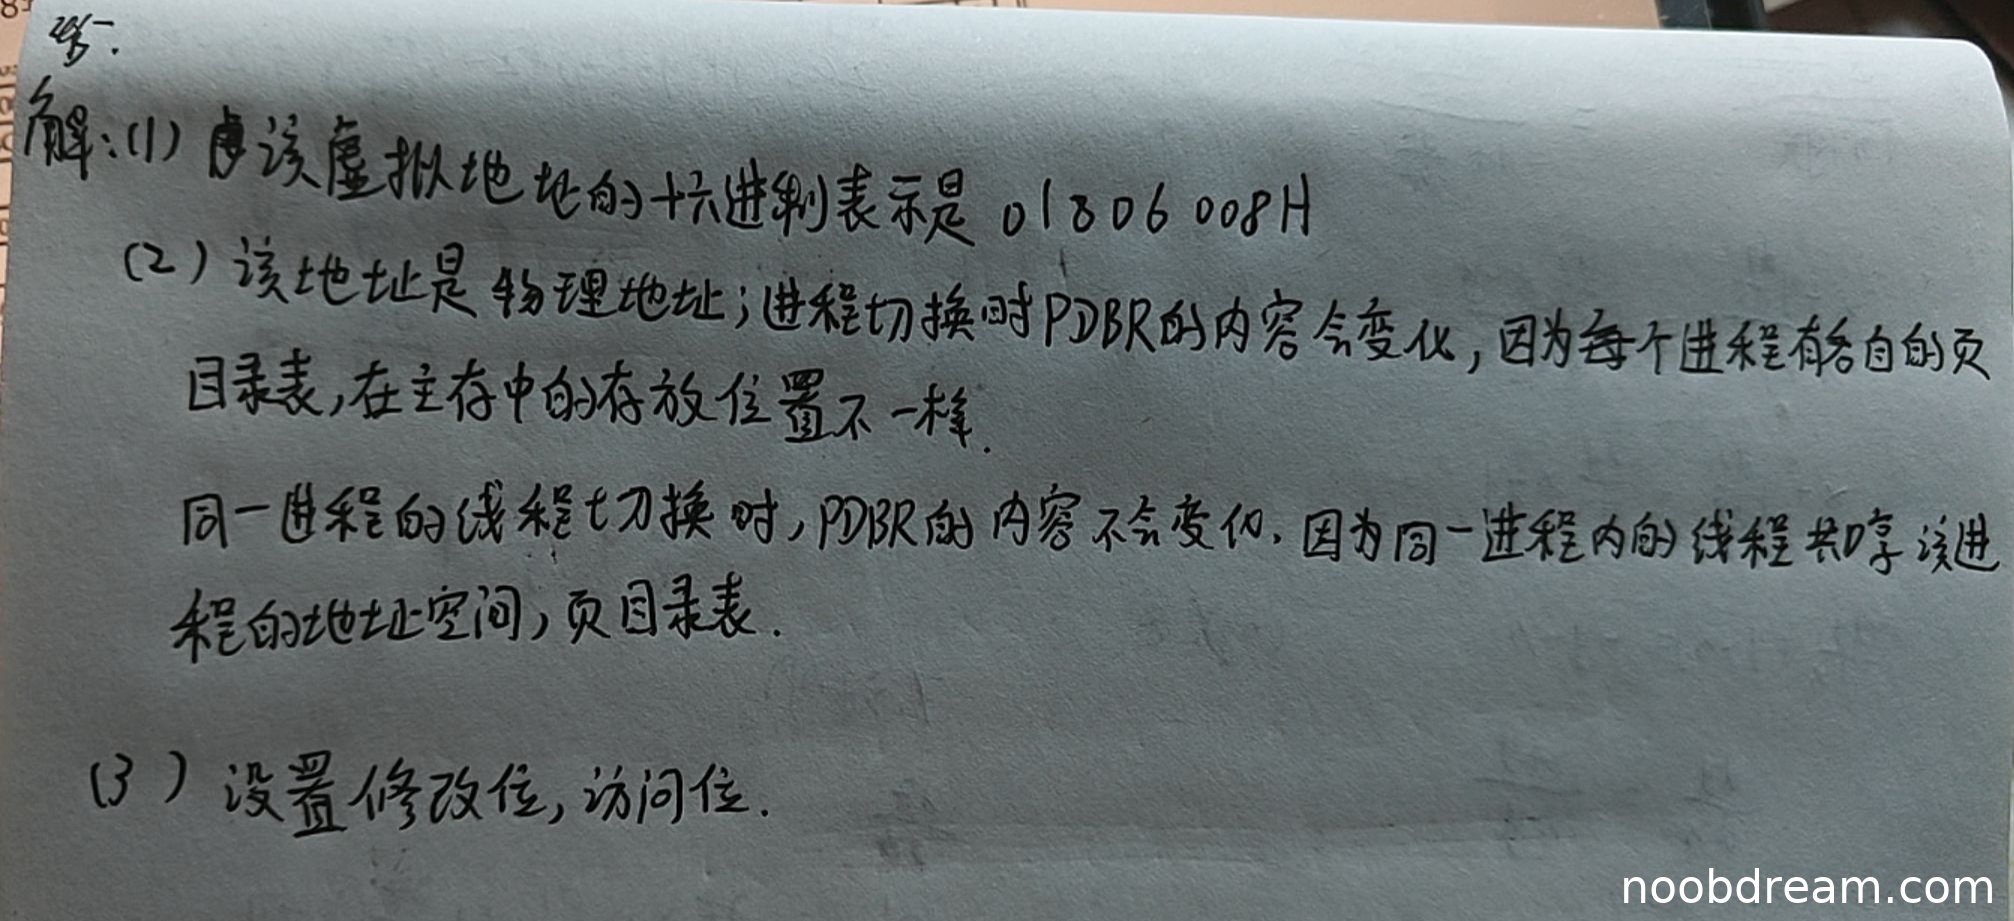 解:(1) 该虚拟地址的十六进制表示是 01806008H
(2) 该地址是物理地址;进程切换时PDBR的内容会变化,因为每个进程有各自的页
目录表,在主存中的存放位置不一样.
同一进程的线程切换时,PDBR的内容不会变化.因为同一进程内的线程共享该进
程的地址空间,页目录表.
(3) 设置修改位,访问位.
noobdream.com